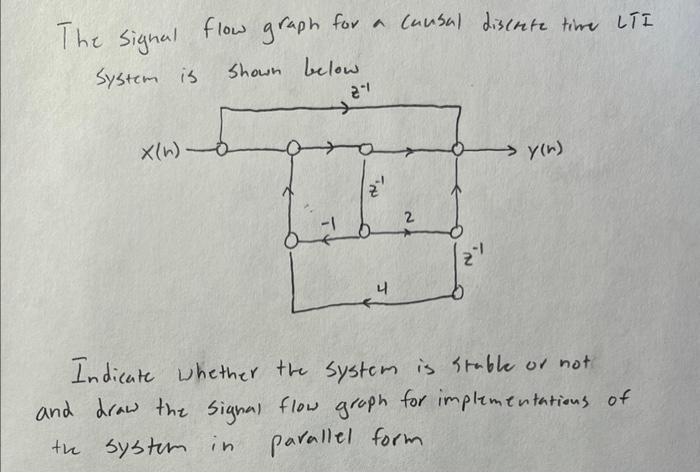 The signal flow graph for a causal discrete time LTI
system is shown below
z⁻¹
x(n)
y(n)
z⁻¹
-1
2
z⁻¹
4
Indicate whether the system is stable or not
and draw the signal flow graph for implementations of
the system in parallel form